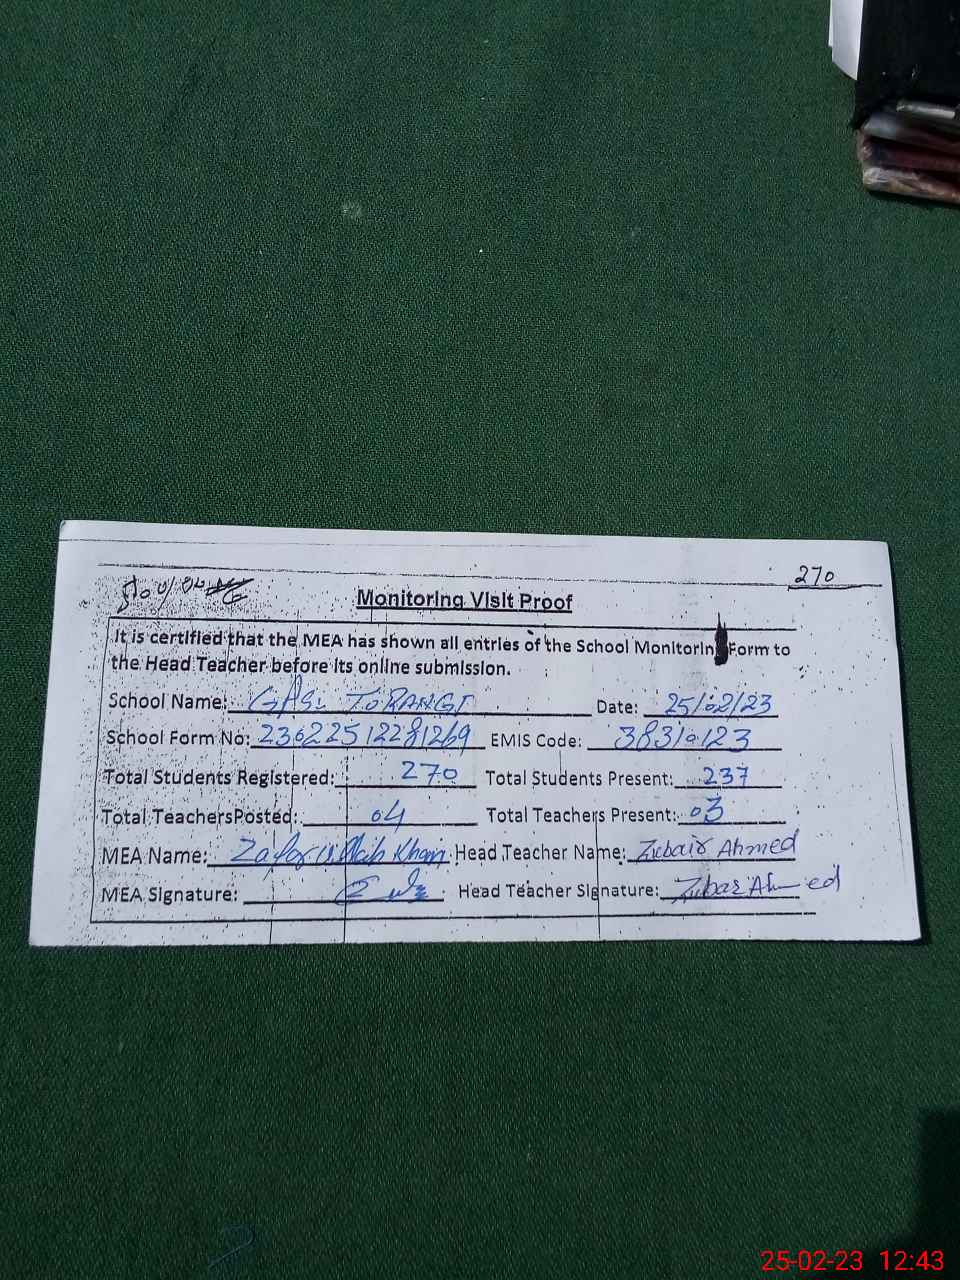 270
Monitoring Visit Proof
It is certified that the MEA has shown all entries of the School Monitoring Form to
the Head Teacher before its online submission.
School Name: GPS: TORANGI Date: 25/02/23
School Form No: 23022512281269 EMIS Code: 38310123
Total Students Registered: 270 Total Students Present: 237
Total TeachersPosted: 04 Total Teachers Present: 03
MEA Name: Zafar Ullah Khan Head Teacher Name: Zubair Ahmed
MEA Signature: Head Teacher Signature: Zubair Ahmed
25-02-23 12:43